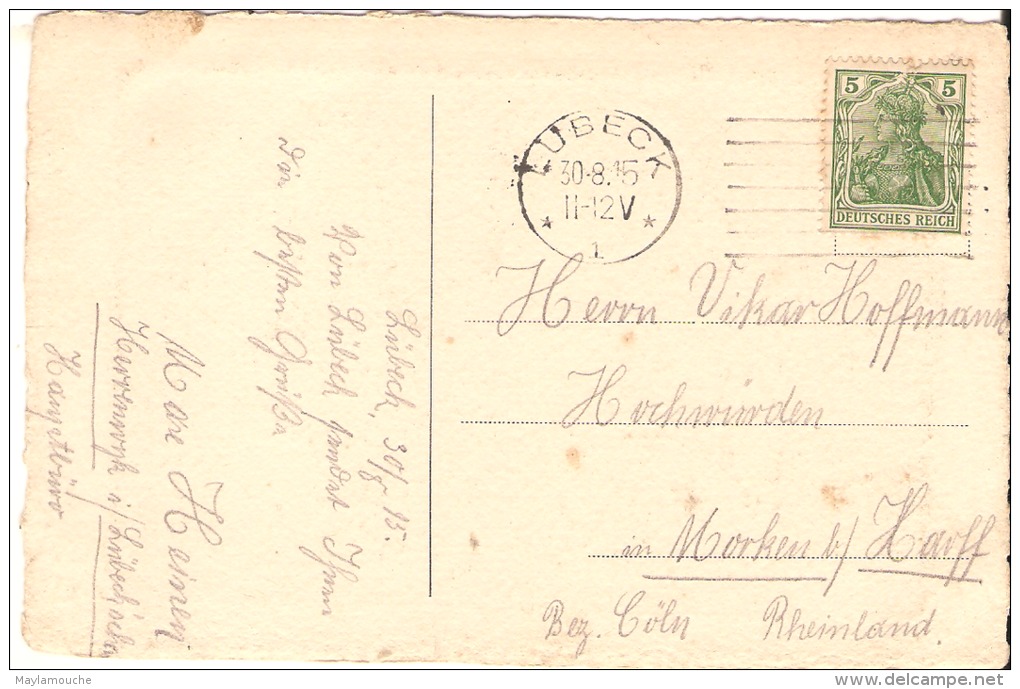 LÜBECK
30.8.15
11-12V
* 1 *
5 5
DEUTSCHES REICH
Herrn Vikar Hoffmann
Hochwürden
in Morken b/ Harff
Bez. Cöln Rheinland.
Lübeck, 30/8 15.
Von Lübeck sendet Ihnen
die besten Grüße
Heinen
Herrenwyk i/ Lübeck
Maylamouche
delcampe.net